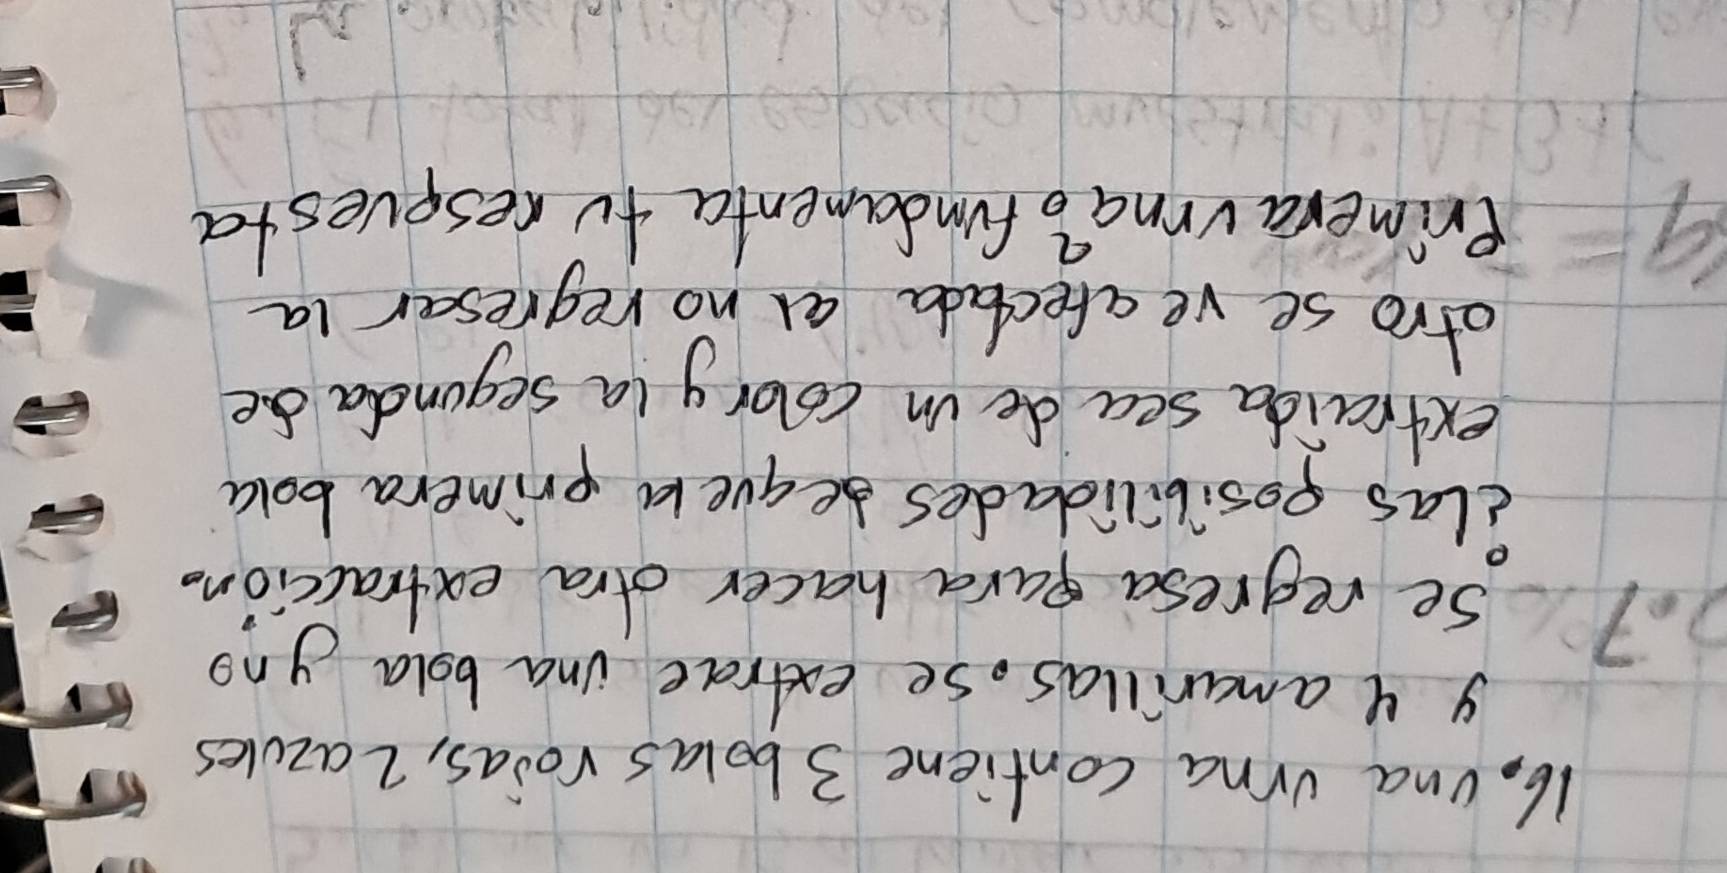 16. Una urna contiene 3 bolas rojas, 2 azules
y 4 amarillas. Se extrae una bola y no
se regresa para hacer otra extracción.
¿Las posibilidades de que la primera bola
extraída sea de un color y la segunda de
otro se ve afectada al no regresar la
Primera urna? fundamenta tu respuesta